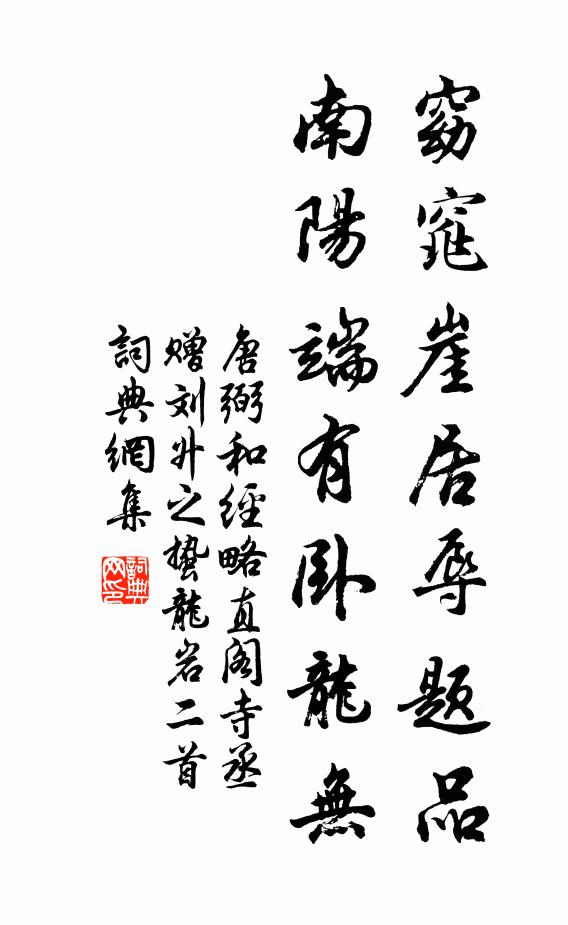 窈窕崖居辱題品
南陽端有卧龍無
唐弼和經略直阁寺丞
赠刘升之蟄龍岩二首
詞典網集
詞典网印